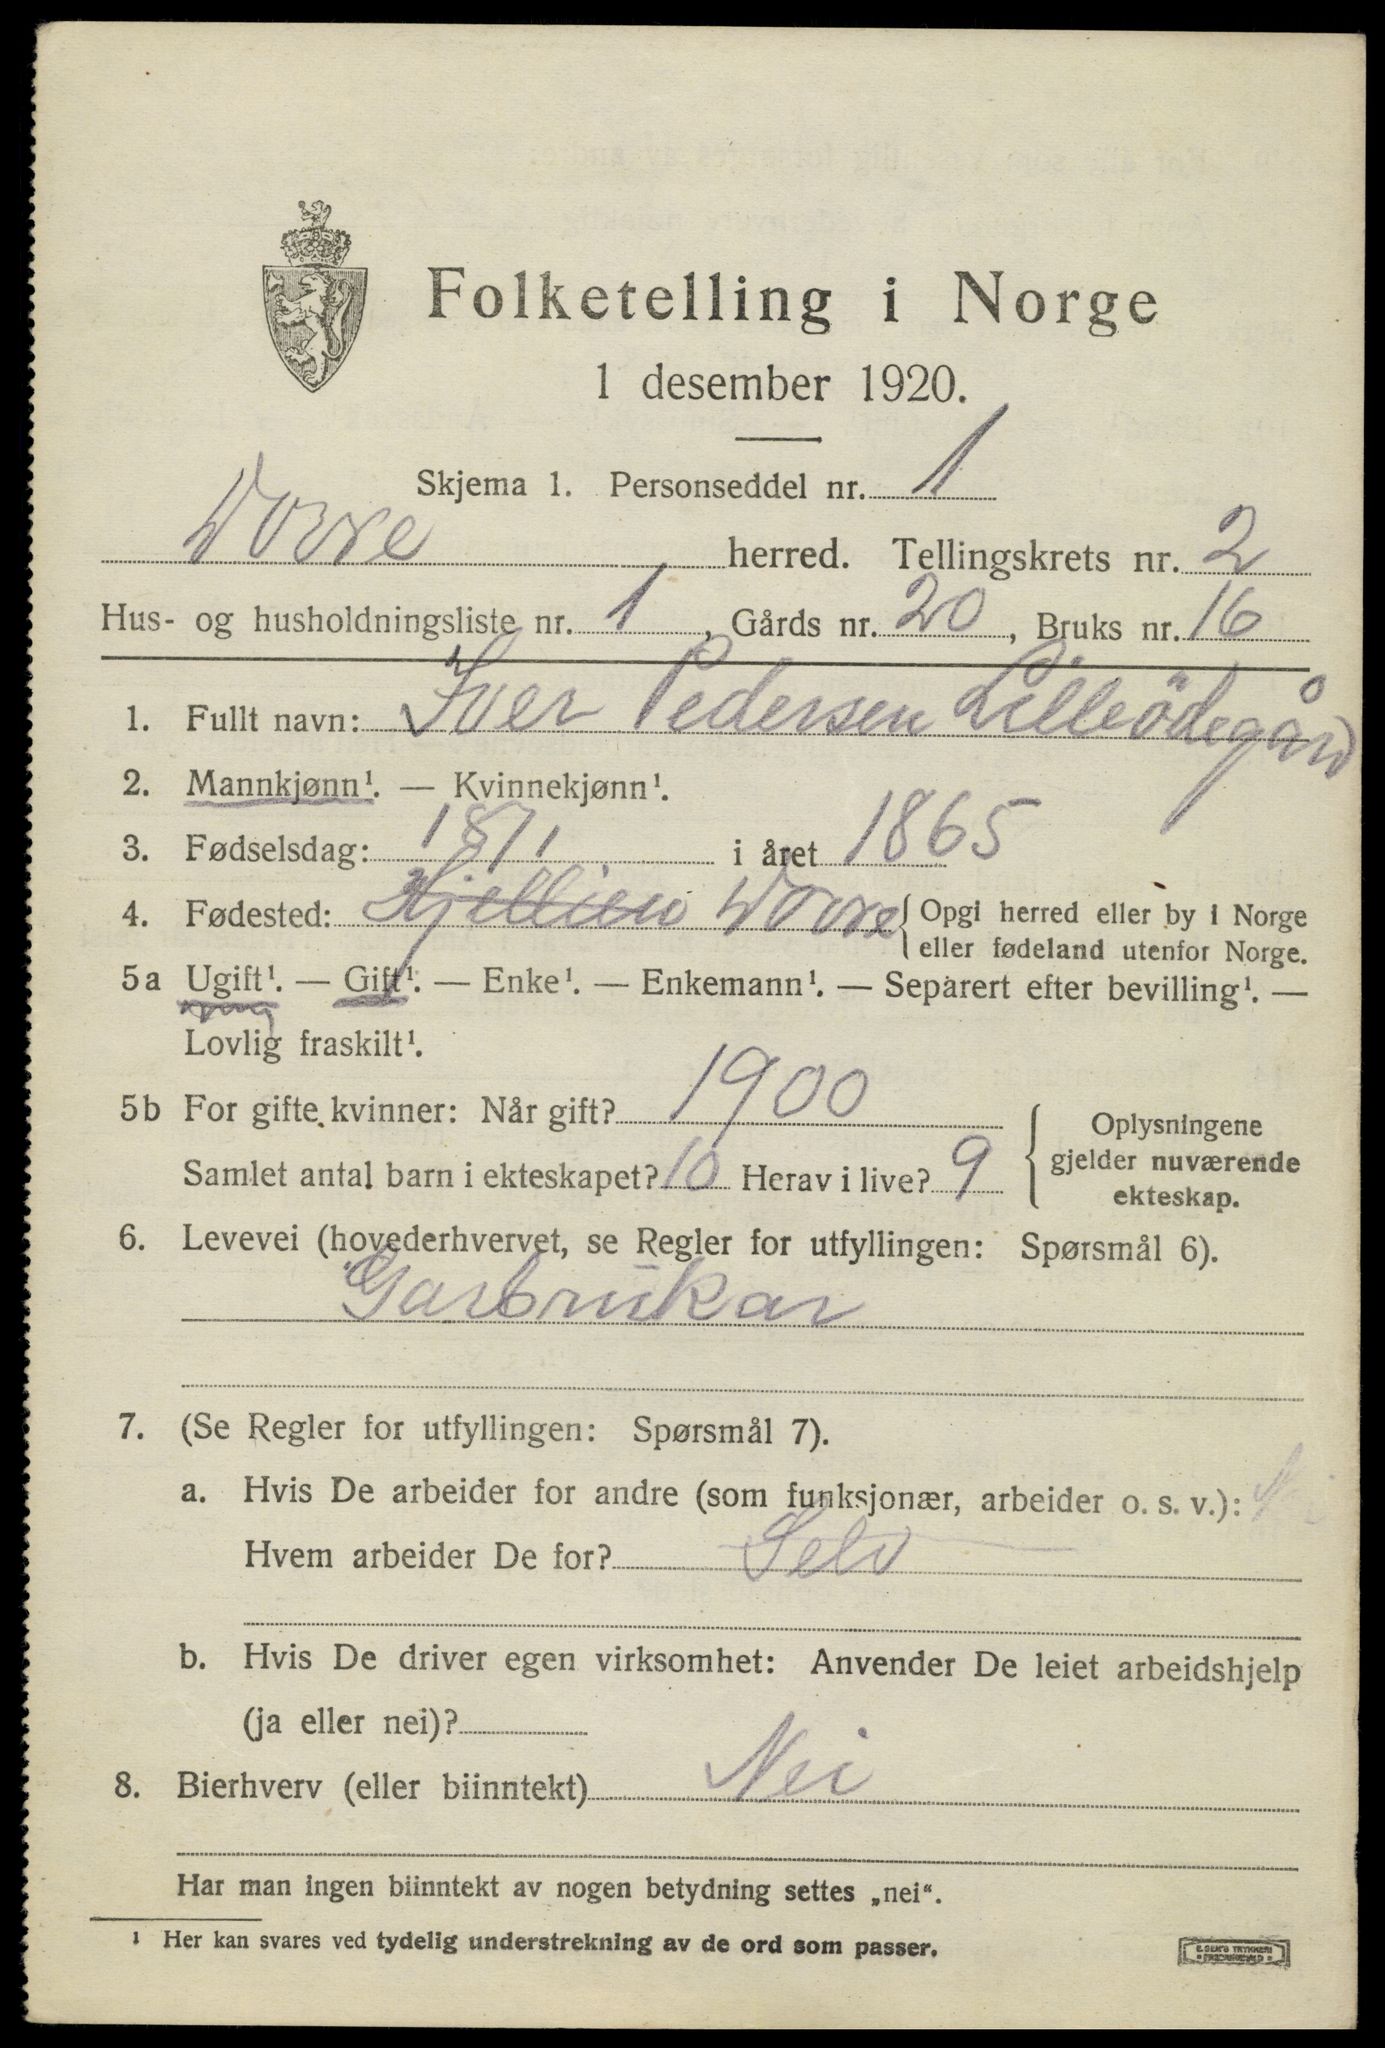 Folketelling i Norge
1 desember 1920.
Skjema 1. Personseddel nr. 1
Dovre herred. Tellingskrets nr. 2
Hus- og husholdningsliste nr. 1, Gårds nr. 20, Bruks nr. 16
1. Fullt navn: Iver Pedersen Lilleödegård
2. Mannkjønn¹. — Kvinnekjønn¹.
3. Fødselsdag: 18/1 i året 1865
4. Fødested: Kjellien Dovre { Opgi herred eller by i Norge
eller fødeland utenfor Norge.
5a Ugift¹. — Gift¹. — Enke¹. — Enkemann¹. — Separert efter bevilling¹. —
Lovlig fraskilt¹.
5b For gifte kvinner: Når gift? 1900
Samlet antal barn i ekteskapet? 10 Herav i live? 9
Oplysningene
gjelder nuværende
ekteskap.
6. Levevei (hovederhvervet, se Regler for utfyllingen: Spørsmål 6).
Garbrukar
7. (Se Regler for utfyllingen: Spørsmål 7).
a. Hvis De arbeider for andre (som funksjonær, arbeider o. s. v.):
Hvem arbeider De for? Selv
b. Hvis De driver egen virksomhet: Anvender De leiet arbeidshjelp
(ja eller nei)?
8. Bierhverv (eller biinntekt) Nei
Har man ingen biinntekt av nogen betydning settes „nei“.
¹ Her kan svares ved tydelig understrekning av de ord som passer.